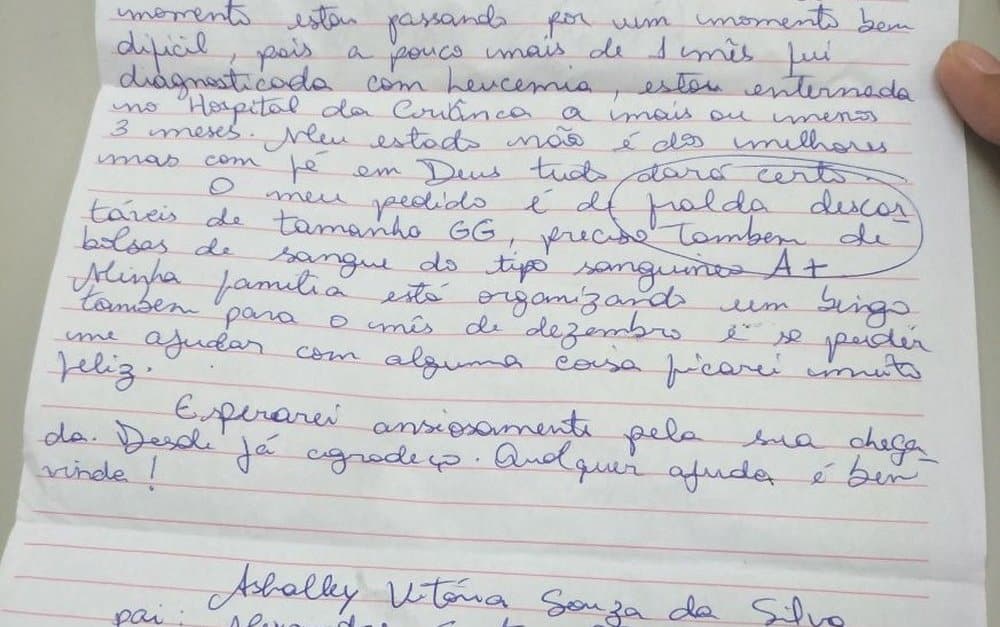 momento estou passando por um momento bem
dificil, pois a pouco mais de 1 mês fui
diagnosticada com Leucemia, estou enternada
no Hospital da Criânca a mais ou menos
3 meses. Meu estado não é dos melhores
mas com fé em Deus tudo dará certo
O meu pedido é de fralda descar-
táveis de tamanho GG, preciso Tambem de
bolsas de sangue do tipo sanguineo A+
Minha família está organizando um bingo
tambem para o mês de dezembro é se poder
me ajudar com alguma coisa ficarei muito
feliz.
Esperarei ansiosamente pela sua chega-
da. Desde já agradeço. Qualquer ajuda é bem-
vinda!
Ashalley Vitória Souza da Silva
pai: